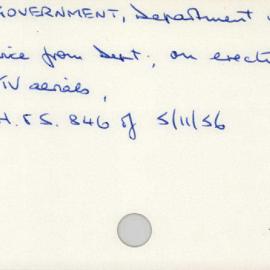 GOVERNMENT, Department
from Dept; on erecti
TV aerials,
H. & S. 846 of 5/11/56